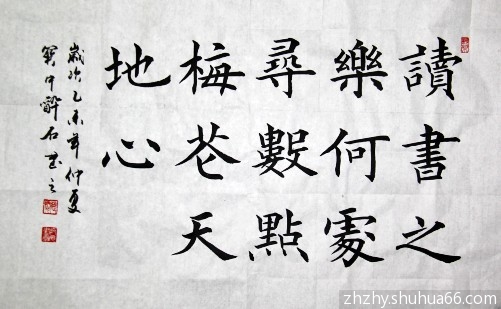 讀書之
樂何處
尋數點
梅花天
地心
歲次乙未年仲夏
醉石書
zhzhy.shuhua66.com